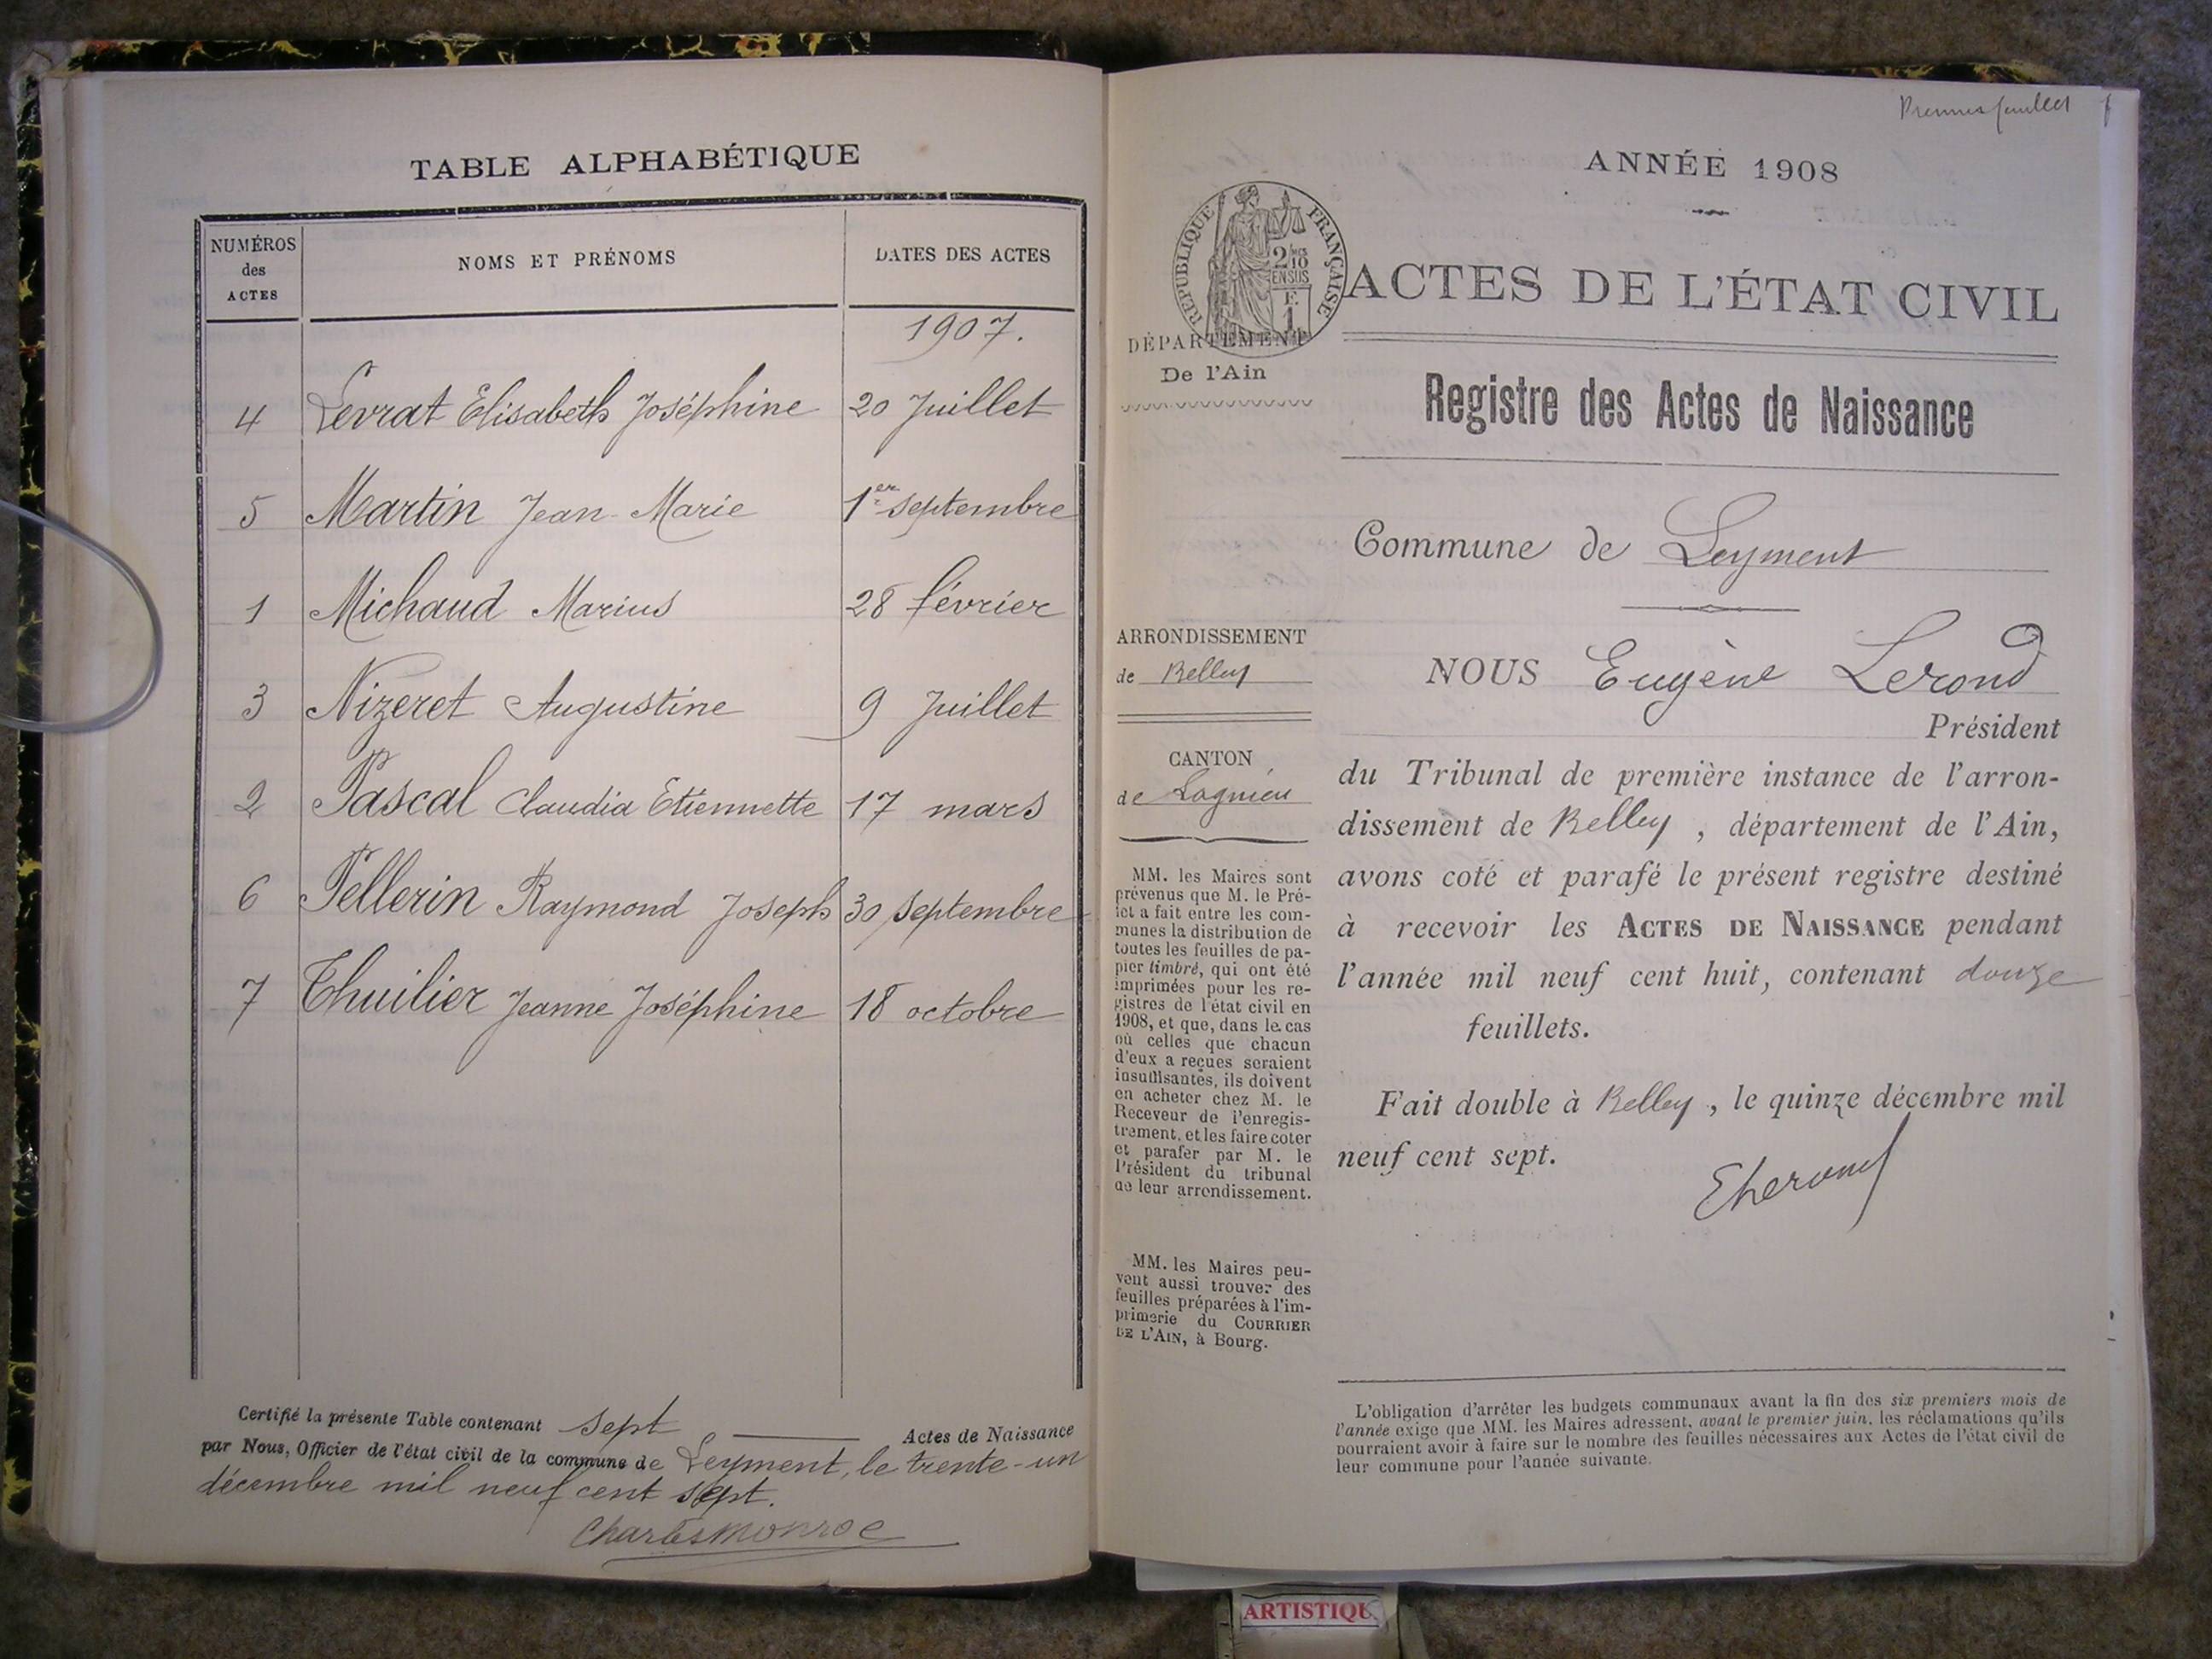 TABLE ALPHABÉTIQUE
NUMÉROS
des
ACTES
NOMS ET PRÉNOMS
DATES DES ACTES
1907.
4 Levrat Elisabeth Joséphine 20 Juillet
5 Martin Jean-Marie 1er septembre
1 Michaud Marius 28 février
3 Nizeret Augustine 9 Juillet
2 Pascal Claudia Etiennette 17 mars
6 Pellerin Raymond Joseph 30 septembre
7 Thuilier Jeanne Joséphine 18 octobre
Certifié la présente Table contenant sept Actes de Naissance
par Nous, Officier de l'état civil de la commune de Leyment, le trente-un
décembre mil neuf cent sept.
Charles Monroe
Premier feuillet
ANNÉE 1908
RÉPUBLIQUE FRANÇAISE
2/10
EN SUS
F.
1
ACTES DE L'ÉTAT CIVIL
DÉPARTEMENT
De l'Ain
Registre des Actes de Naissance
Commune de Leyment
ARRONDISSEMENT
de Belley
CANTON
de Lagnieu
MM. les Maires sont
prévenus que M. le Pré-
fet a fait entre les com-
munes la distribution de
toutes les feuilles de pa-
pier timbré, qui ont été
imprimées pour les re-
gistres de l'état civil en
1908, et que, dans le cas
où celles que chacun
d'eux a reçues seraient
insuffisantes, ils doivent
en acheter chez M. le
Receveur de l'enregis-
trement, et les faire coter
et parafer par M. le
Président du tribunal
de leur arrondissement.
MM. les Maires peu-
vent aussi trouver des
feuilles préparées à l'im-
primerie du COURRIER
DE L'AIN, à Bourg.
NOUS Eugène Lerond
Président
du Tribunal de première instance de l'arron-
dissement de Belley, département de l'Ain,
avons coté et parafé le présent registre destiné
à recevoir les ACTES DE NAISSANCE pendant
l'année mil neuf cent huit, contenant douze
feuillets.
Fait double à Belley, le quinze décembre mil
neuf cent sept.
ELerond
L'obligation d'arrêter les budgets communaux avant la fin des six premiers mois de
l'année exige que MM. les Maires adressent, avant le premier juin, les réclamations qu'ils
pourraient avoir à faire sur le nombre des feuilles nécessaires aux Actes de l'état civil de
leur commune pour l'année suivante.
ARTISTIQU